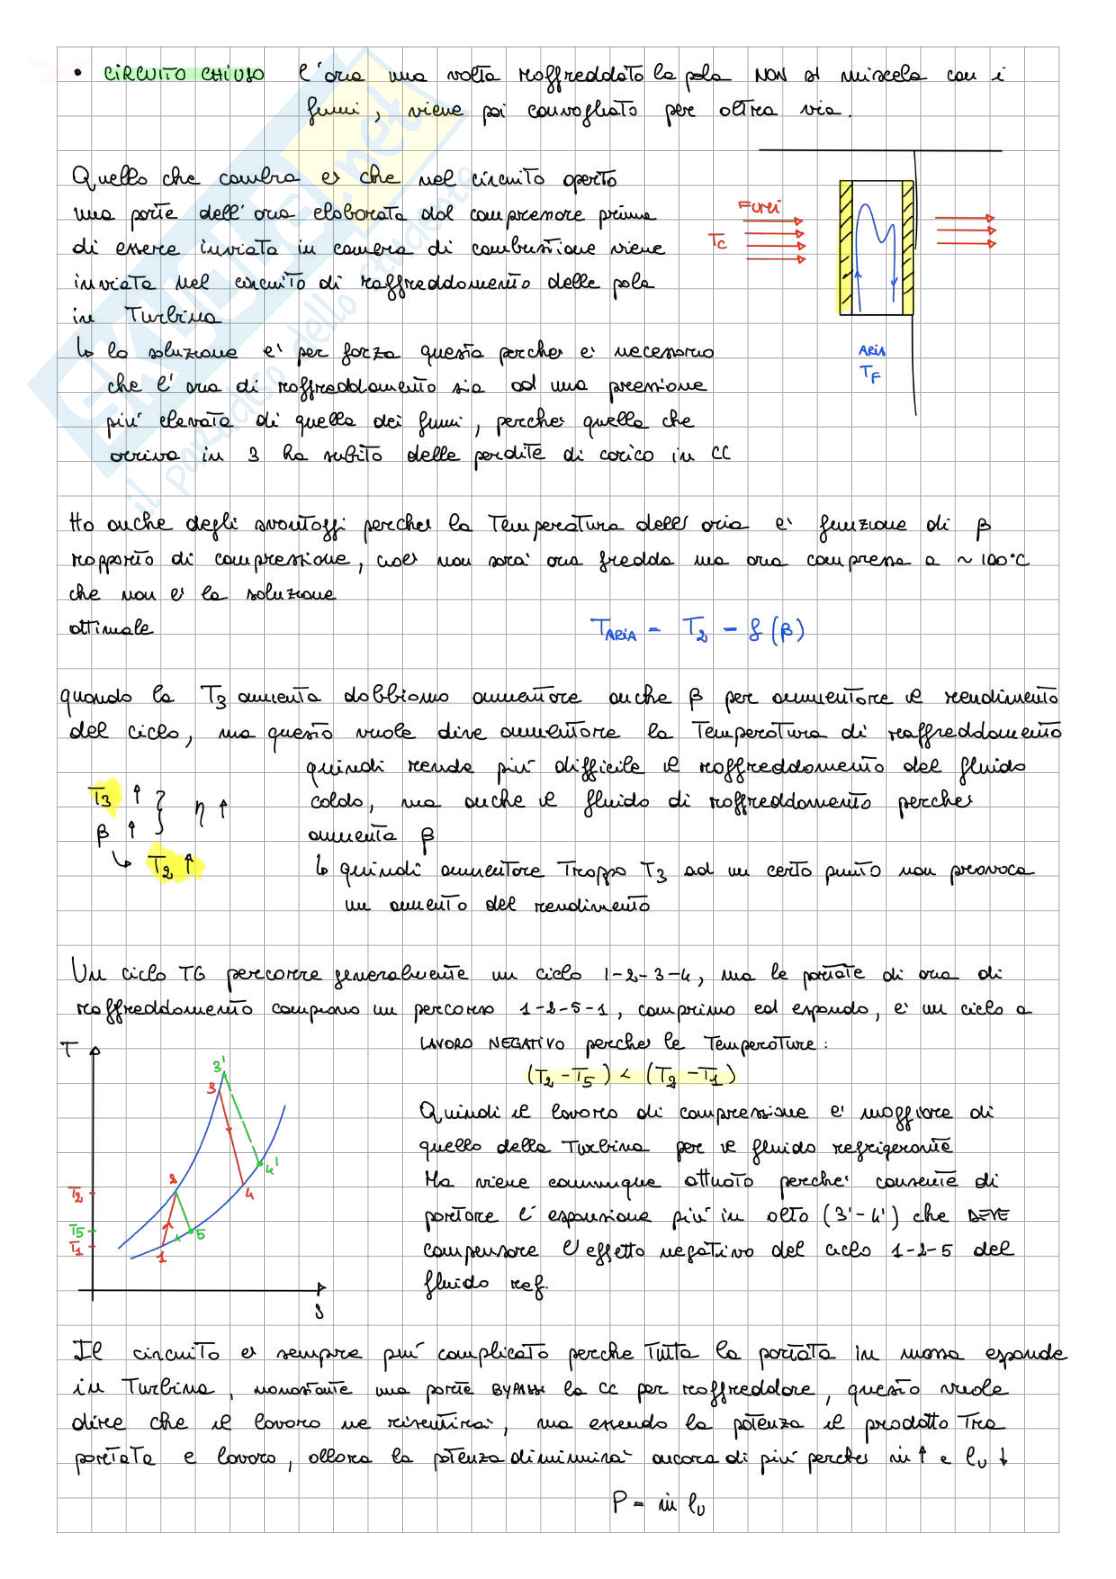 • CIRCUITO CHIUSO l'aria una volta raffreddato la pala NON si miscela con i
fumi, viene poi convogliato per altra via.
Quello che cambia è che nel circuito aperto
una parte dell'aria elaborata dal compressore prima
di essere inviata in camera di combustione viene
inviata nel circuito di raffreddamento delle pale
in Turbina
↳ la soluzione è per forza questa perché è necessario
che l'aria di raffreddamento sia ad una pressione
più elevata di quella dei fumi, perché quella che
arriva in 3 ha subito delle perdite di carico in CC
FUMI
Tc
ARIA
TF
Ho anche degli svantaggi perché la Temperatura dell'aria è funzione di β
rapporto di compressione, cioè non sarà aria fredda ma aria compressa a ~ 100°C
che non è la soluzione
ottimale
TARIA = T2 = f(β)
quando la T3 aumenta dobbiamo aumentare anche β per aumentare il rendimento
del ciclo, ma questo vuole dire aumentare la Temperatura di raffreddamento
quindi rende più difficile il raffreddamento del fluido
caldo, ma anche il fluido di raffreddamento perché
aumenta β
T3 ↑
β ↑
η ↑
↳ T2 ↑
↳ quindi aumentare Troppo T3 ad un certo punto non provoca
un aumento del rendimento
Un ciclo TG percorre generalmente un ciclo 1-2-3-4, ma le portate di aria di
raffreddamento compiono un percorso 1-2-5-1, comprimo ed espando, è un ciclo a
LAVORO NEGATIVO perché le Temperature:
(T2-T5) < (T2-T1)
Quindi il lavoro di compressione è maggiore di
quello della Turbina per il fluido refrigerante
Ma viene comunque attuato perché consente di
portare l'espansione più in alto (3'-4') che DEVE
compensare l'effetto negativo del ciclo 1-2-5 del
fluido ref.
T
3'
3
2
4'
4
T2
T5
T1
5
1
S
Il circuito è sempre più complicato perché Tutta la portata in massa espande
in Turbina, nonostante una parte BYPASSI la CC per raffreddare, questo vuole
dire che il lavoro ne risentirà, ma essendo la potenza il prodotto Tra
portata e lavoro, allora la potenza diminuirà ancora di più perché ṁ↑ e lu ↓
P = ṁ lu